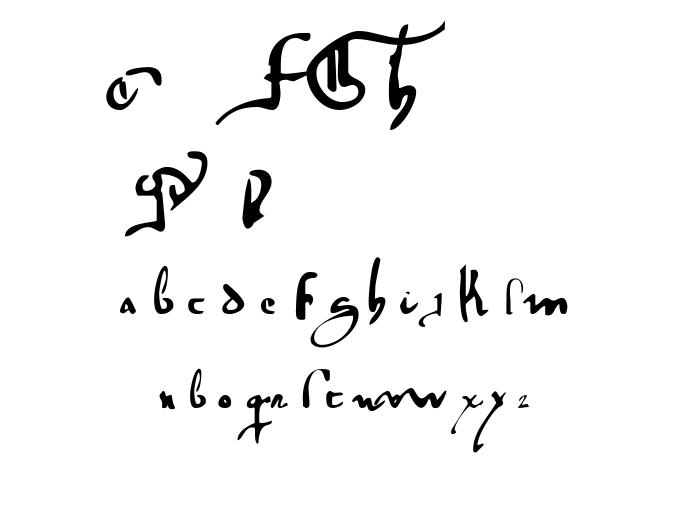 C F G h
a b c d e f g h i j k l m
n b o q r ſ t u v w x y z